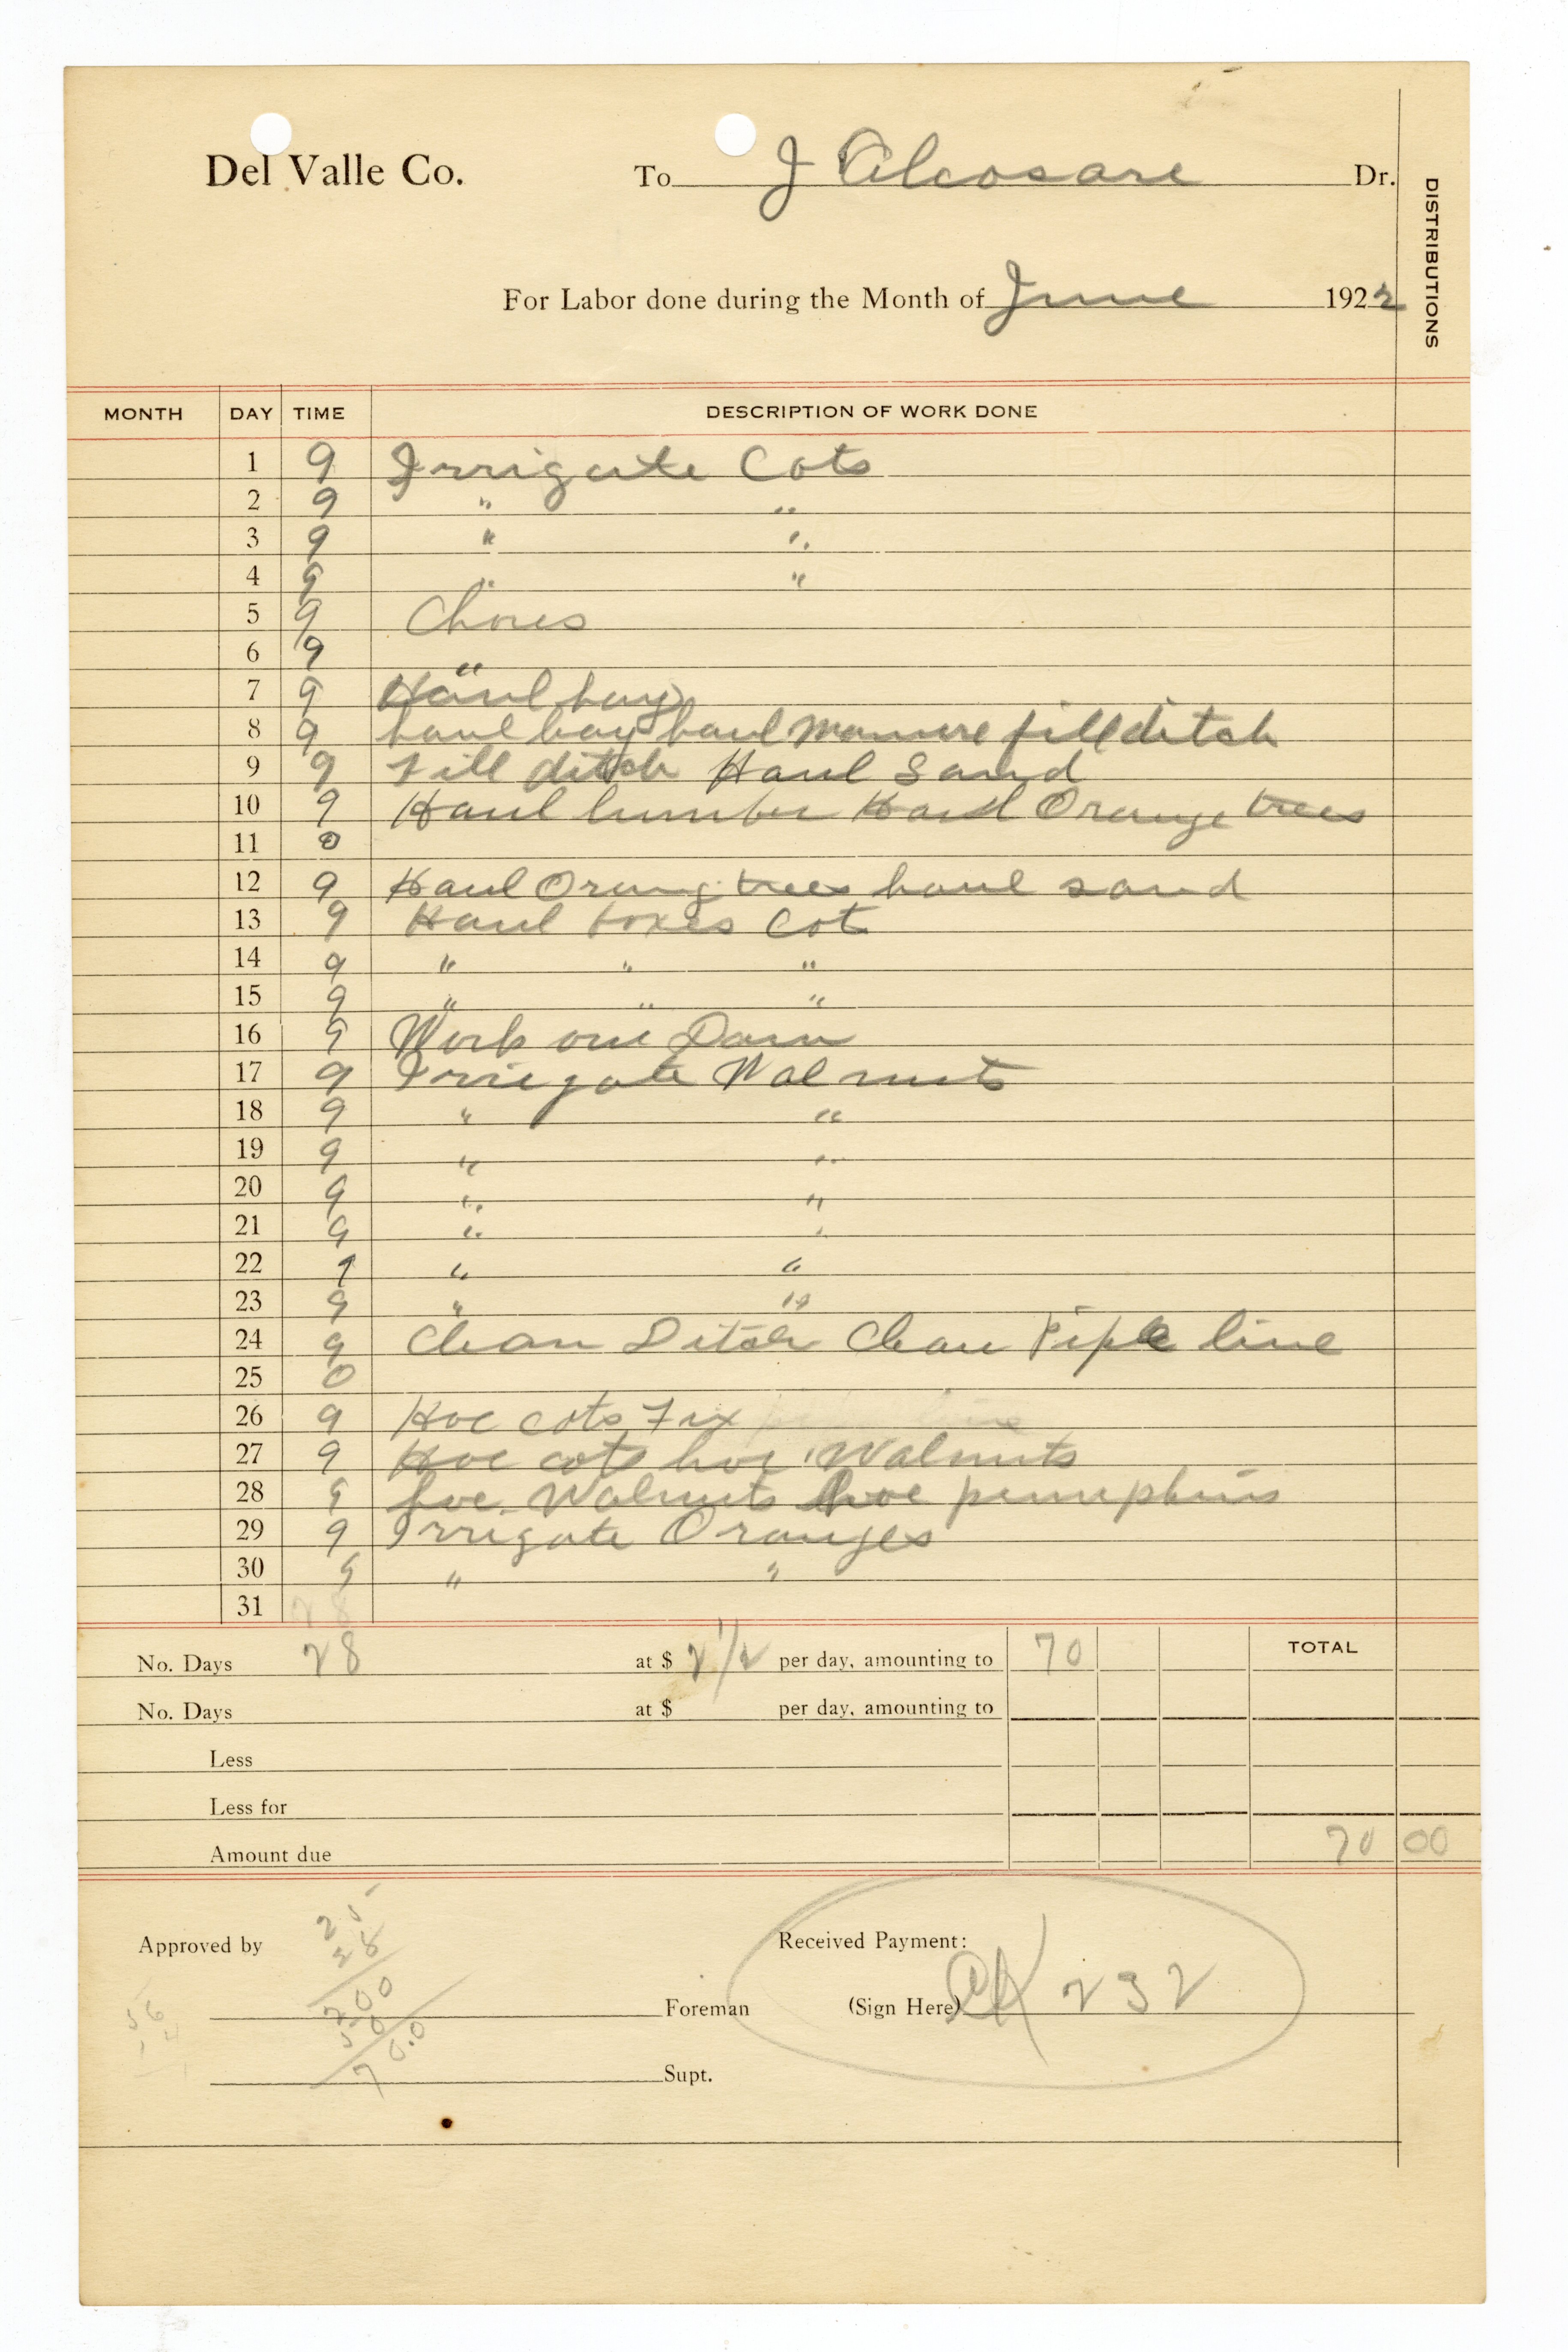 Del Valle Co. To J Alcosare Dr.
DISTRIBUTIONS
For Labor done during the Month of June 1922
MONTH DAY TIME DESCRIPTION OF WORK DONE
1 9 Irrigate Cots
2 9 " "
3 9 " "
4 9 " "
5 9 Chores
6 9 "
7 9 Haul hay
8 9 haul hay haul manure fill ditch
9 9 Fill ditch Haul Sand
10 9 Haul lumber Haul Orange trees
11 0
12 9 Haul Orang trees haul sand
13 9 Haul boxes Cot
14 9 " " "
15 9 " " "
16 9 Work one Dam
17 9 Irriegate Walnuts
18 9 " "
19 9 " "
20 9 " "
21 9 " "
22 9 " "
23 9 " "
24 9 Clean Ditch Clean Pipe line
25 0
26 9 Hoe cots Fix
27 9 Hoe cots hoe Walnuts
28 9 hoe Walnuts hoe pumpkins
29 9 Irrigate Oranges
30 9 " "
31 28
No. Days 28 at $ 2 1/2 per day, amounting to 70 TOTAL
No. Days at $ per day, amounting to
Less
Less for
Amount due 70 00
Approved by Received Payment:
Foreman (Sign Here) CK 232
Supt.
25
28
200
50
70.0